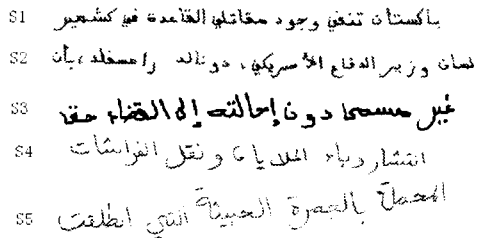 S1 باكستان تنفي وجود مقاتلي القاعدة في كشمير
S2 لسان وزير الدفاع الأمريكي، دونالد رامسفلد، بأن
S3 غير مسمى دون إحالته إلى القضاء حقا
S4 انتشار وباء الملاريا ونقل الفراشات
S5 المحملة بالجمرة الخبيثة التي انطلقت